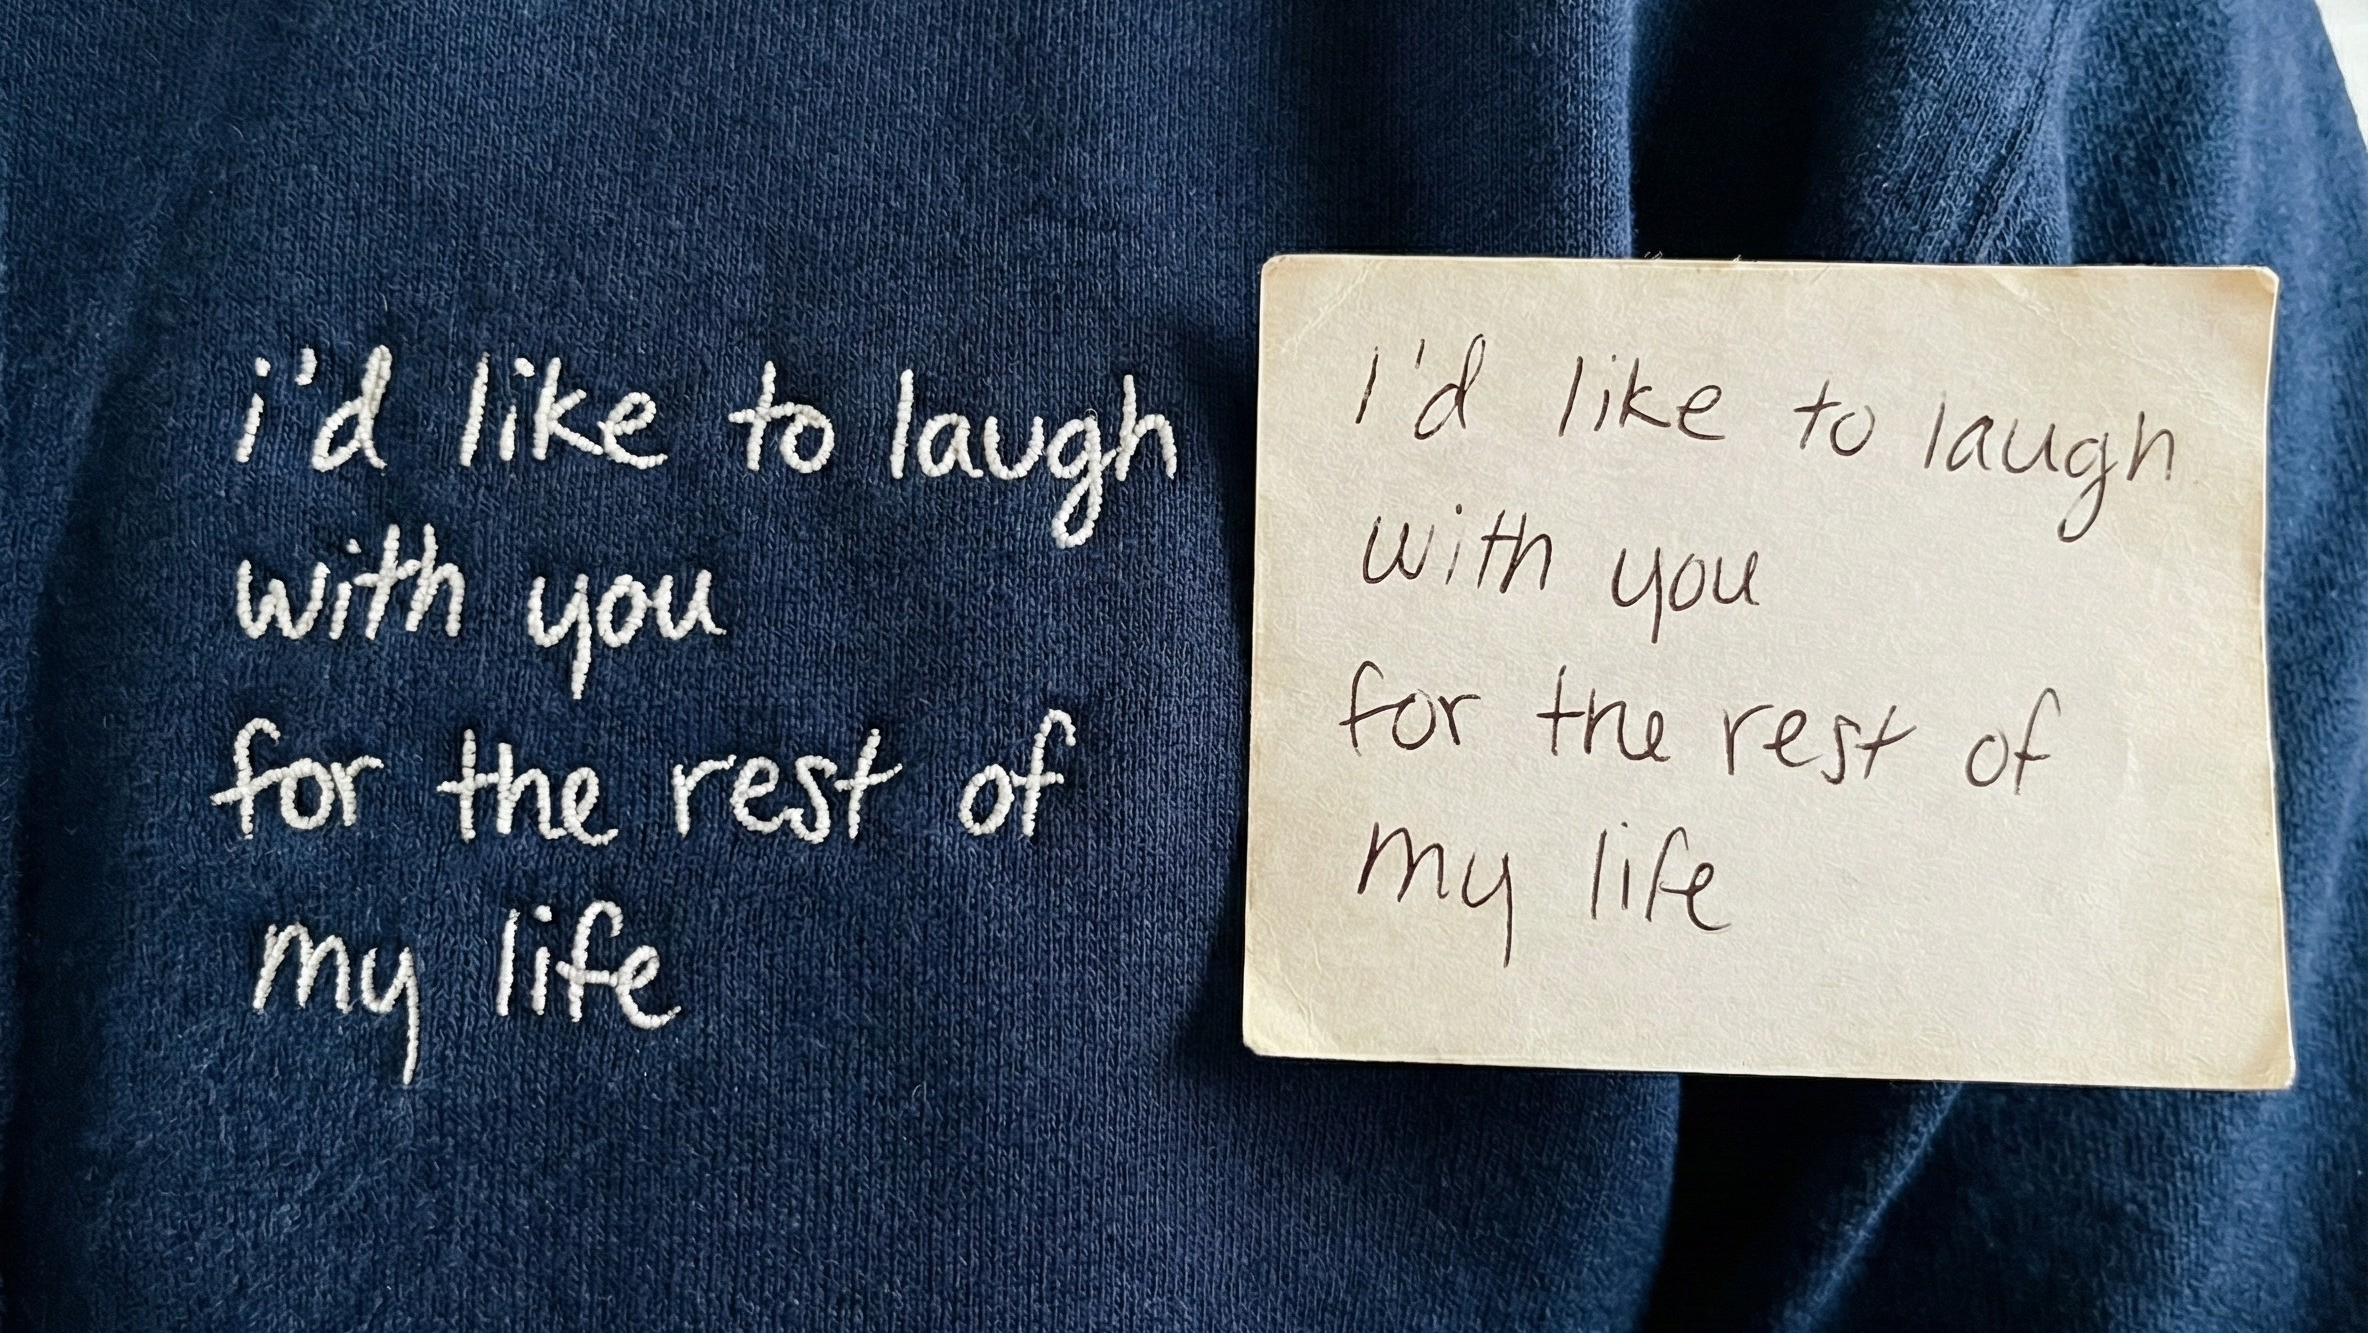 i'd like to laugh
with you
for the rest of
my life
i'd like to laugh
with you
for the rest of
my life